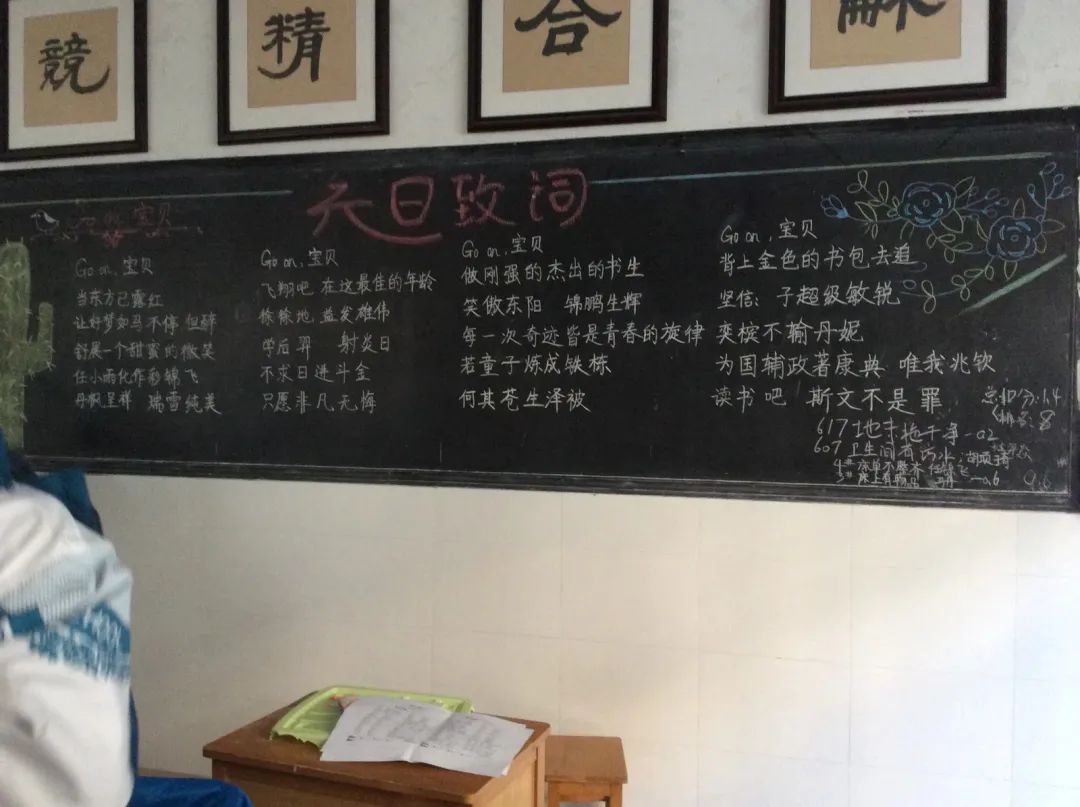 競
精
合
天日致词
宝贝
Go on, 宝贝
当东方已露红
让好梦如马不停 但碎
舒展一个甜蜜的微笑
任小雨化作彩锦飞
丹枫呈祥 瑞雪纯美
Go on, 宝贝
飞翔吧 在这最佳的年龄
徐徐地 益发雄伟
学后羿 射炎日
不求日进斗金
只愿非凡无悔
Go on, 宝贝
做刚强的杰出的书生
笑傲东阳 锦鹏生辉
每一次奇迹皆是青春的旋律
若童子炼成铁栋
何其苍生泽被
Go on, 宝贝
背上金色的书包去追
坚信: 子超级敏锐
奕槟不输丹妮
为国辅政著康典 唯我兆钦
读书吧 斯文不是罪
617 地未拖干净 -0.2
607 卫生间有污水